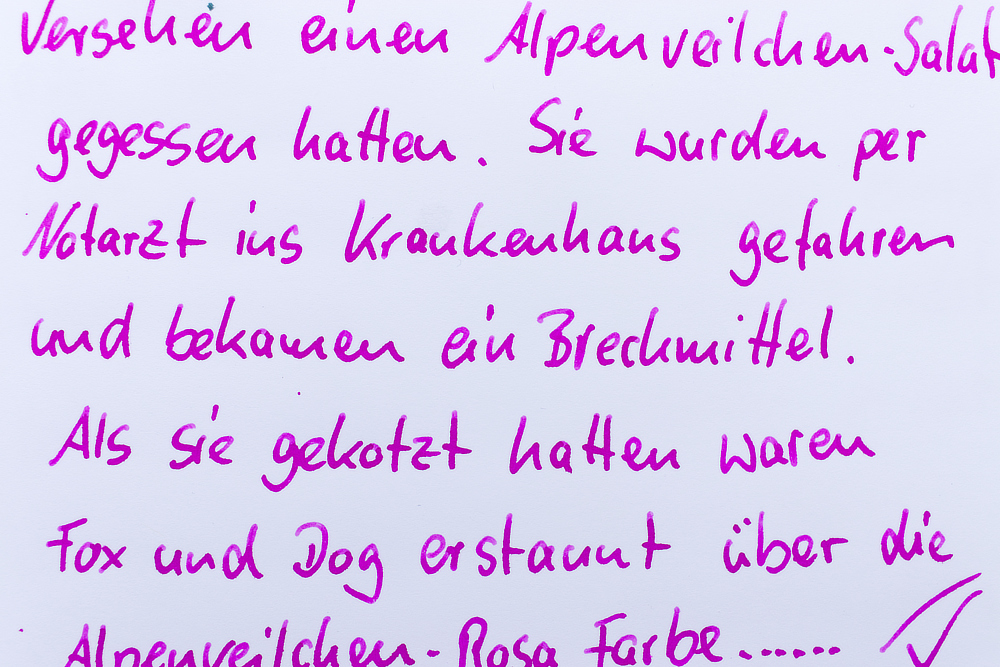 Versehen einen Alpenveilchen-Salat
gegessen hatten. Sie wurden per
Notarzt ins Krankenhaus gefahren
und bekamen ein Brechmittel.
Als sie gekotzt hatten waren
Fox und Dog erstaunt über die
Alpenveilchen-Rosa Farbe......